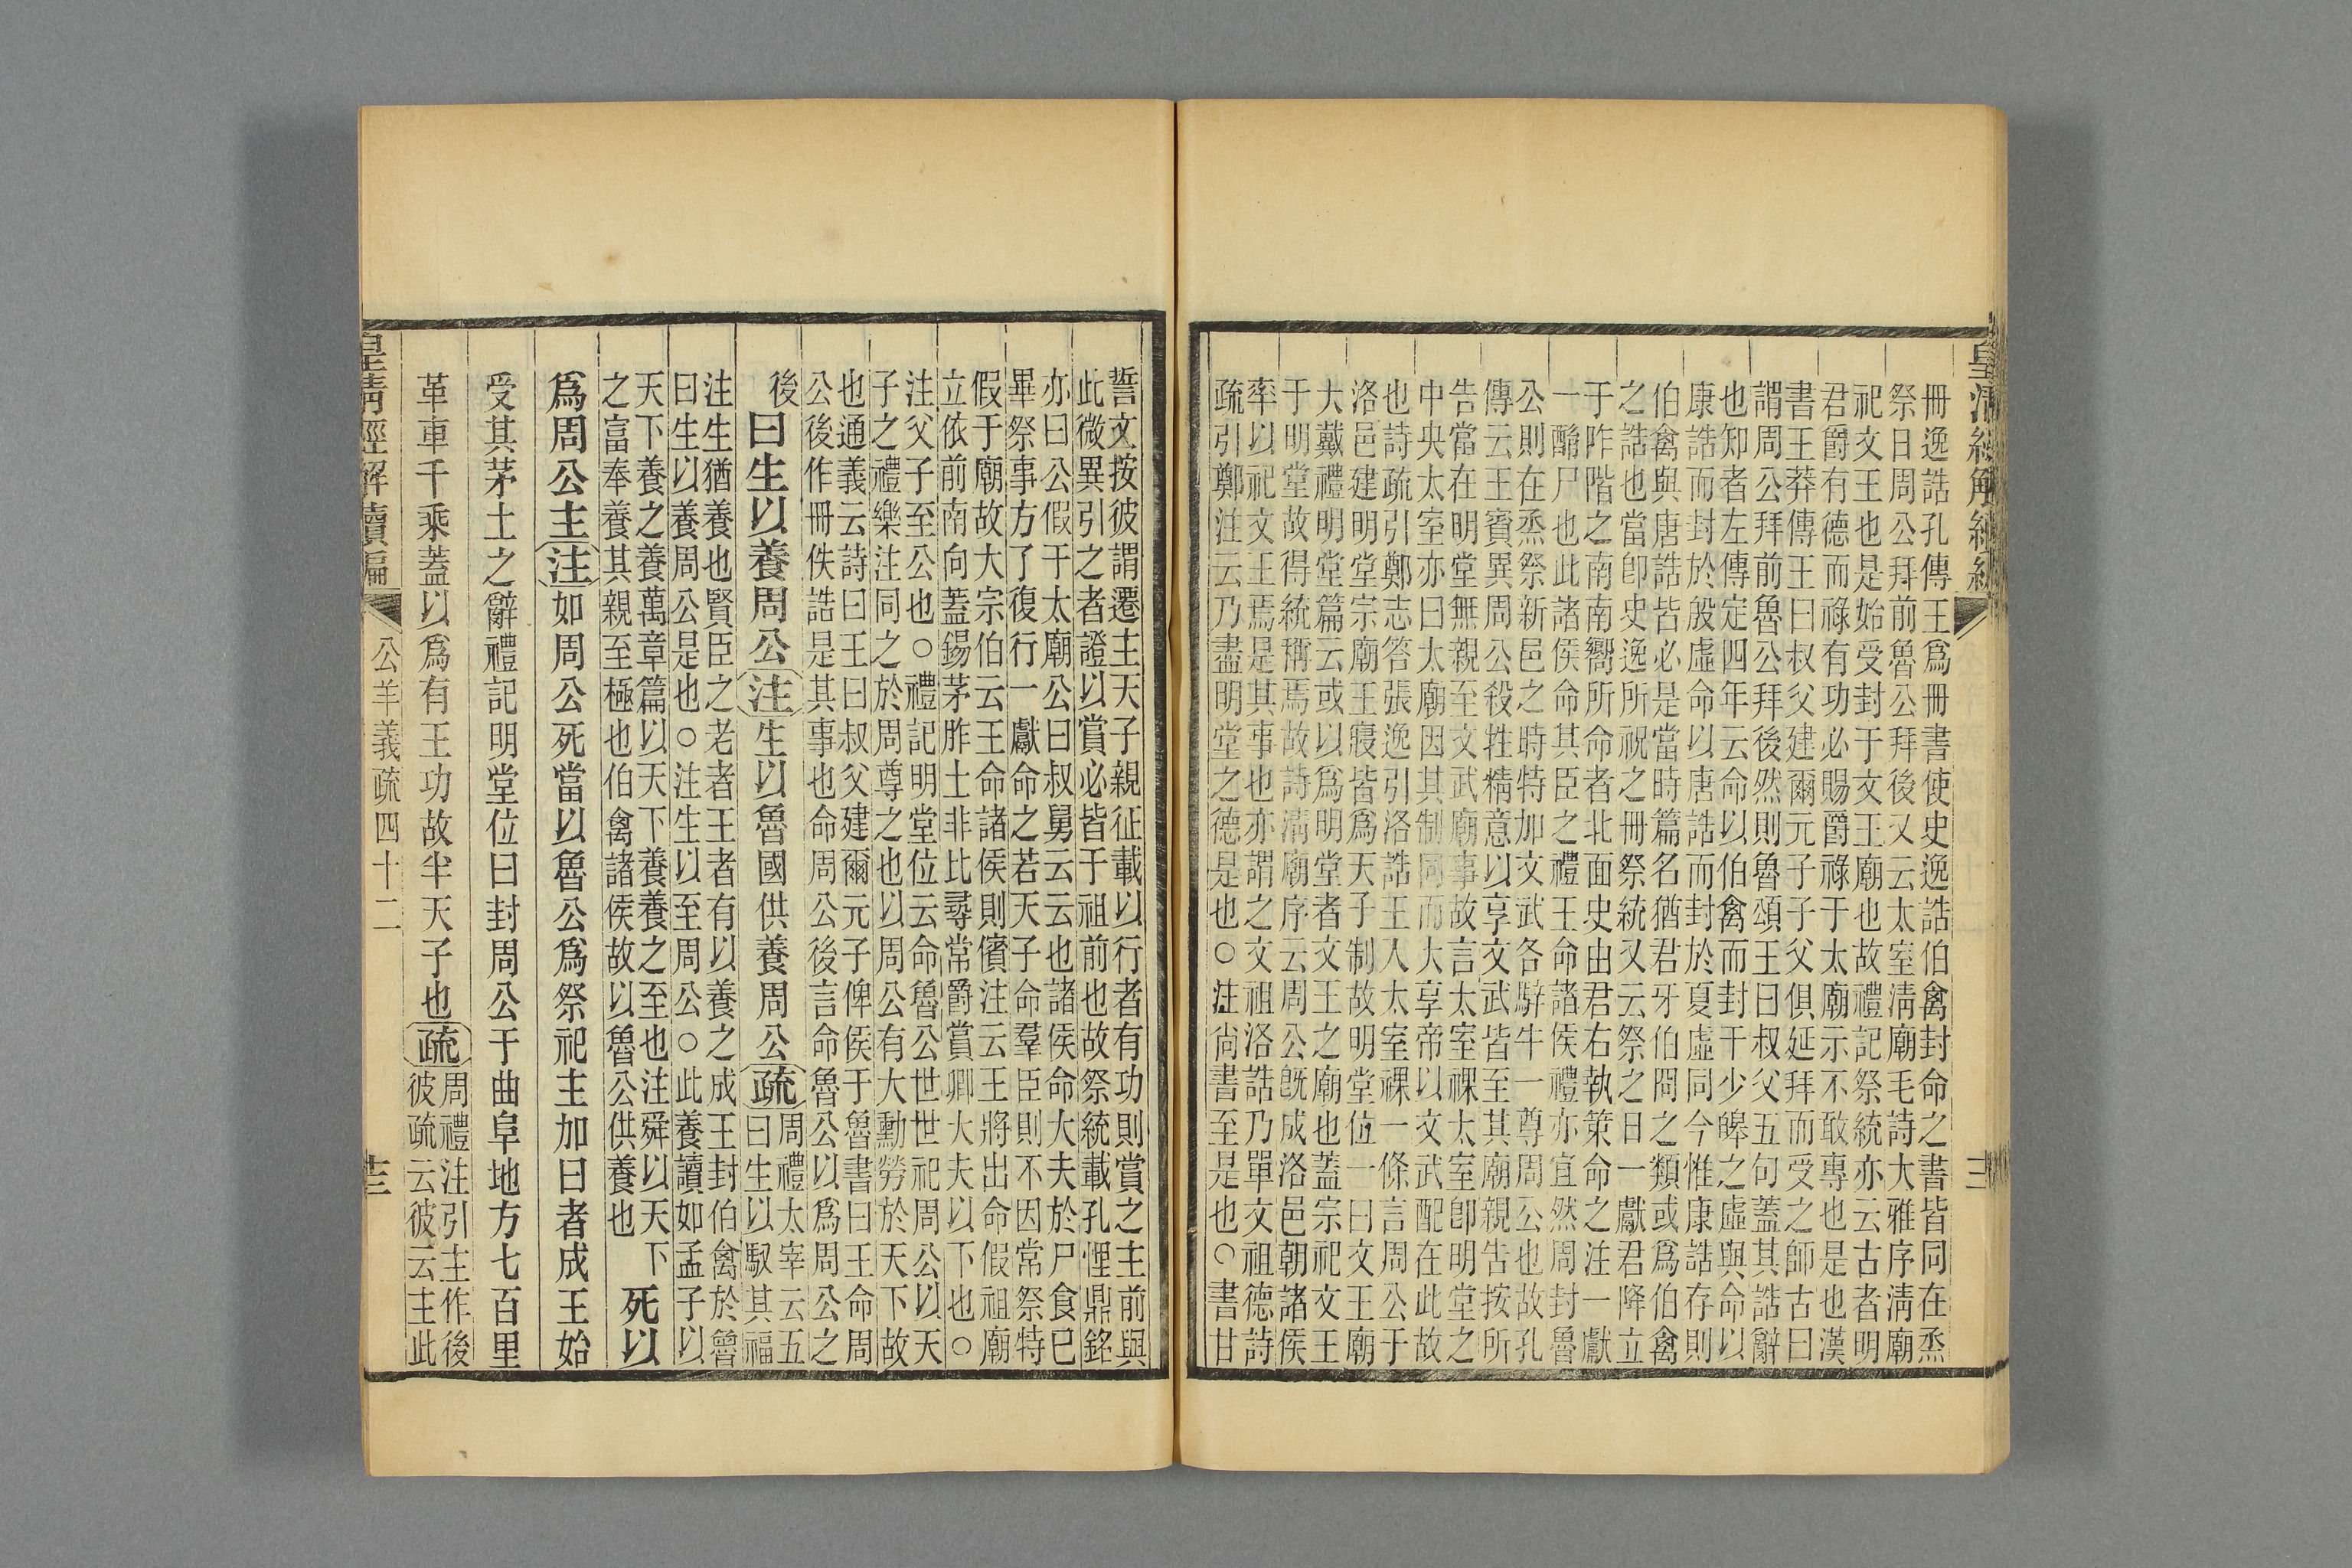 冊逸誥孔傳王爲冊書使史逸誥伯禽封命之書皆同在烝
祭日周公拜前魯公拜後又云太室清廟毛詩大雅序清廟
祀文王也是始受封于文王廟也故禮記祭統亦云古者明
君爵有德而祿有功必賜爵祿于太廟示不敢專也是也漢
書王莽傳王曰叔父建爾元子子父俱延拜而受之師古曰
謂周公拜前魯公拜後然則魯頌王曰叔父五句蓋其誥辭
也知者左傳定四年云命以伯禽而封于少皞之虛與命以
康誥而封於殷虛命以唐誥而封於夏虛同今惟康誥存則
伯禽與唐誥皆必是當時篇名猶君牙伯冏之類或爲伯禽
之誥也當卽史逸所祝之冊祭統又云祭之日一獻君降立
于阼階之南南嚮所命者北面史由君右執策命之注一獻
一酳尸也此諸侯命其臣之禮王命諸侯禮亦宜然周封魯
公則在烝祭新邑之時特加文武各騂牛一尊周公也故孔
傳云王賓異周公殺牲精意以享文武皆至其廟親告按所
告當在明堂無親至文武廟事故言太室祼太室卽明堂之
中央太室亦曰太廟因其制同而大享帝以文武配在此故
也詩疏引鄭志答張逸引洛誥王入太室祼一條言周公于
洛邑建明堂宗廟王寢皆爲天子制故明堂位一曰文王廟
大戴禮明堂篇云或以爲明堂者文王之廟也蓋宗祀文王
于明堂故得統稱焉故詩清廟序云周公旣成洛邑朝諸侯
率以祀文王焉是其事也亦謂之文祖洛誥乃單文祖德詩
疏引鄭注云乃盡明堂之德是也○注尙書至是也○書甘
誓文按彼謂遷主天子親征載以行者有功則賞之主前與
此微異引之者證以賞必皆于祖前也故祭統載孔悝鼎銘
亦曰公假于太廟公曰叔舅云云也諸侯命大夫於尸食已
畢祭事方了復行一獻命之若天子命羣臣則不因常祭特
假于廟故大宗伯云王命諸侯則儐注云王將出命假祖廟
立依前南向蓋錫茅胙土非比尋常爵賞卿大夫以下也○
注父子至公也○禮記明堂位云命魯公世世祀周公以天
子之禮樂注同之於周尊之也以周公有大勳勞於天下故
也通義云詩曰王曰叔父建爾元子俾侯于魯書曰王命周
公後作冊佚誥是其事也命周公後言命魯公以爲周公之
後
曰生以養周公注生以魯國供養周公疏周禮太宰云五
曰生以馭其福
注生猶養也賢臣之老者王者有以養之成王封伯禽於魯
曰生以養周公是也○注生以至周公○此養讀如孟子以
天下養之養萬章篇以天下養養之至也注舜以天下
之富奉養其親至極也伯禽諸侯故以魯公供養也
死以
爲周公主注如周公死當以魯公爲祭祀主加曰者成王始
受其茅土之辭禮記明堂位曰封周公于曲阜地方七百里
革車千乘蓋以爲有王功故半天子也疏周禮注引主作後
彼疏云彼云主此
皇清經解續編
公羊義疏四十二